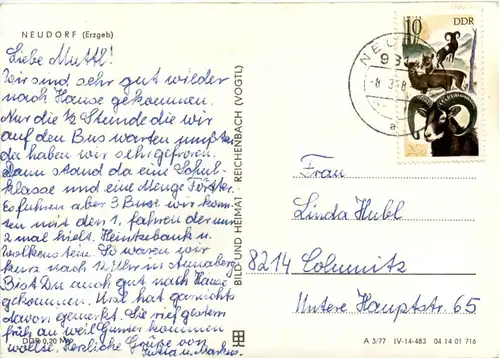 NEUDORF (Erzgeb)
Liebe Mutti!
Wir sind sehr gut wieder
nach Hause gekommen.
Nur die ½ Stunde die wir
auf den Bus warten mußten
da haben wir sehr gefroren.
Dann stand da eine Schul-
klasse und eine Menge Förster.
Es fuhren aber 3 Busse wir konn-
ten mit den 1. fahren der nur
2 mal hielt. Heinzebank u.
Wolkenstein. So waren wir
kurz nach 12 Uhr in Annaberg.
Bist Du auch gut nach Hause
gekommen. Uta hat garnichts
davon gemerkt. Sie rief gestern
früh an weil Gunter kommen
wollte. Herzliche Grüße von
Jutta u. Markus.
DDR 0,20 M
BILD UND HEIMAT REICHENBACH (VOGTL)
10 DDR
NEU
93
-8.3.
a
Frau
Linda Hubl
8214 Colmnitz
Untere Hauptstr. 65
A 3/77 IV-14-483 04 14 01 716